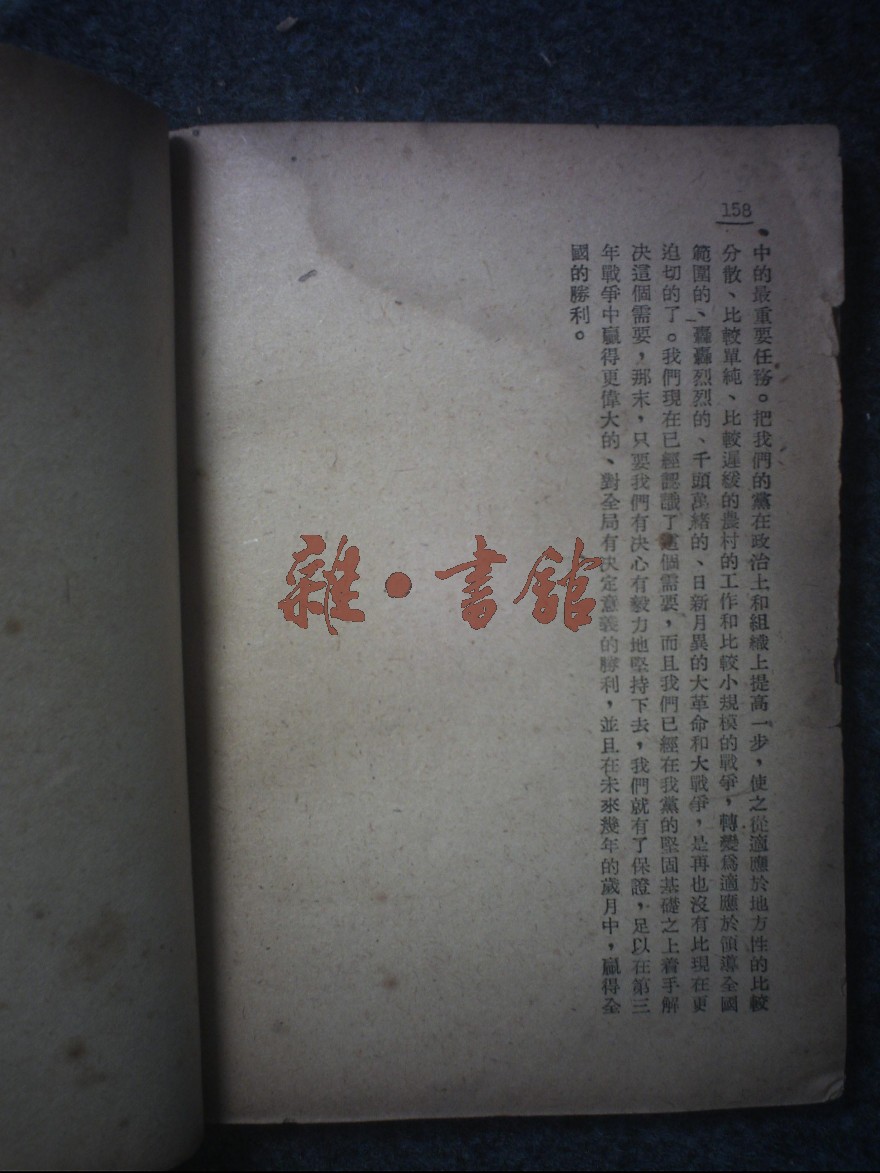 158
中的最重要任務。把我們的黨在政治上和組織上提高一步，使之從適應於地方性的比較
分散、比較單純、比較遲緩的農村的工作和比較小規模的戰爭，轉變爲適應於領導全國
範圍的、轟轟烈烈的、千頭萬緒的、日新月異的大革命和大戰爭，是再也沒有比現在更
迫切的了。我們現在已經認識了這個需要，而且我們已經在我黨的堅固基礎之上着手解
决這個需要，那末，只要我們有决心有毅力地堅持下去，我們就有了保證，足以在第三
年戰爭中贏得更偉大的、對全局有决定意義的勝利，並且在未來幾年的歲月中，贏得全
國的勝利。
雜·書舘